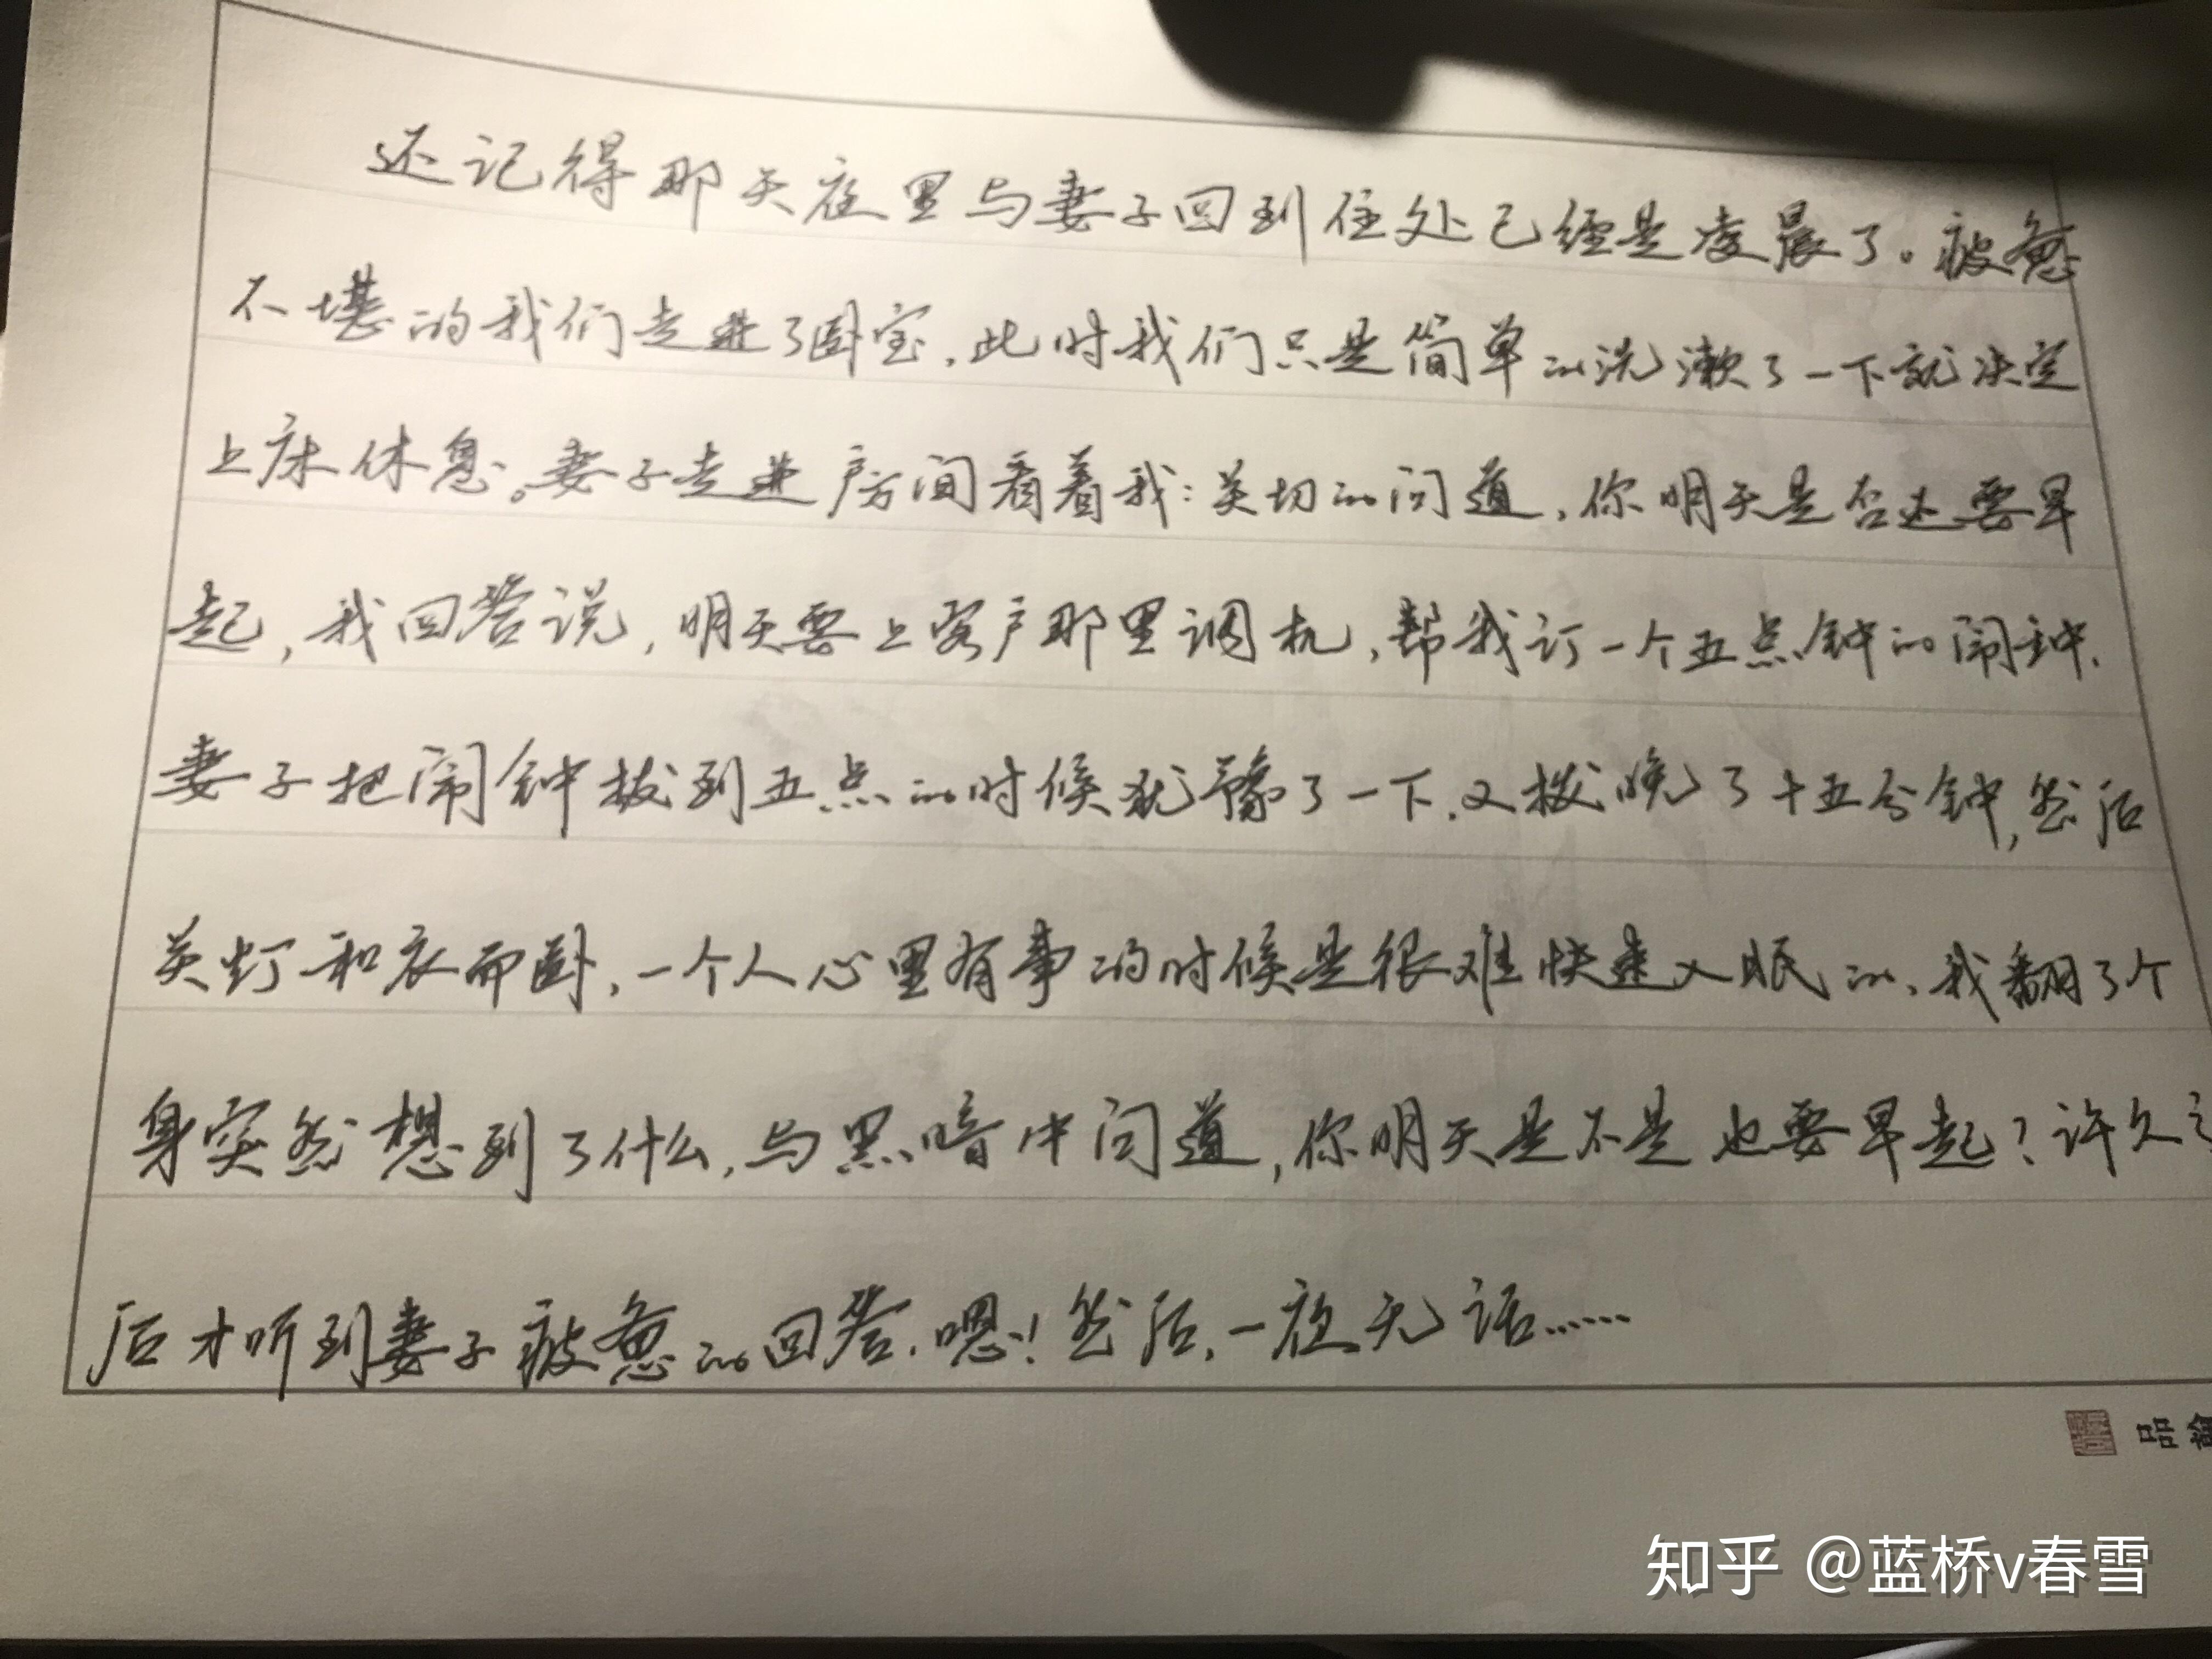 还记得那天夜里与妻子回到住处已经是凌晨了。疲惫
不堪的我们走进了卧室，此时我们只是简单的洗漱了一下就决定
上床休息。妻子走进房间看着我：关切的问道，你明天是否还要早
起，我回答说，明天要上客户那里调机，帮我订一个五点钟的闹钟.
妻子把闹钟拨到五点的时候犹豫了一下.又拨晚了十五分钟,然后
关灯和衣而卧，一个人心里有事的时候是很难快速入眠的、我翻了个
身突然想到了什么,与黑暗中问道,你明天是不是也要早起？许久之
后才听到妻子疲惫的回答.嗯！然后.一夜无话……
品
知乎 @蓝桥v春雪